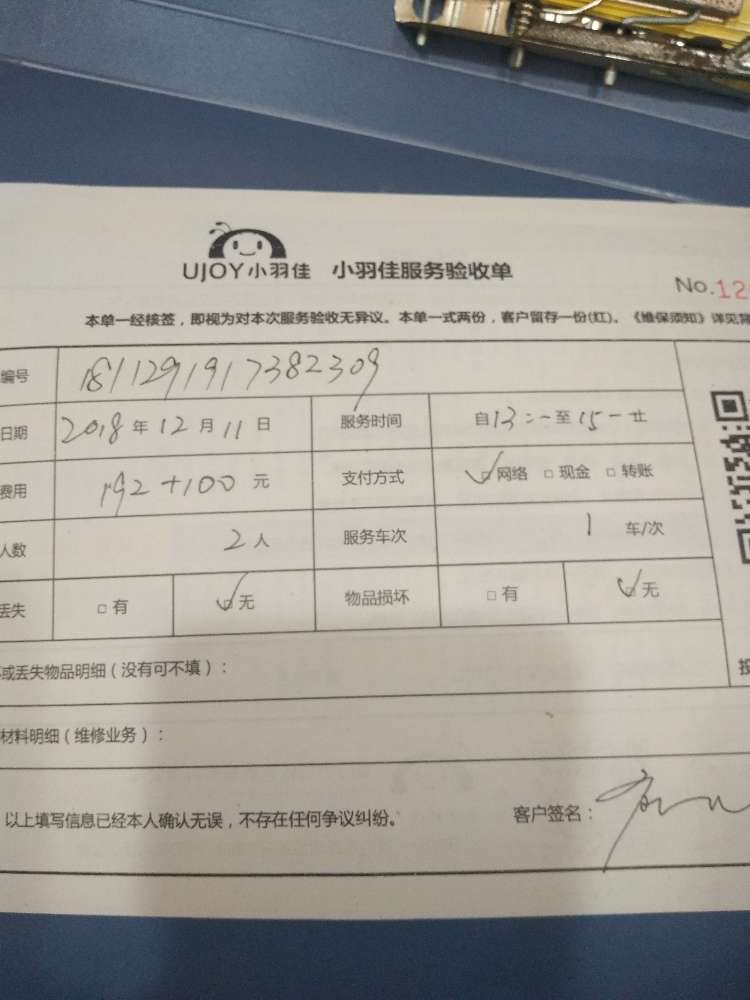 UJOY小羽佳 小羽佳服务验收单
No.12
本单一经核签，即视为对本次服务验收无异议。本单一式两份，客户留存一份(红)。《维保须知》详见背
编号 1811291917382309
日期 2018年12月11日 服务时间 自13:一至15一
费用 192+100元 支付方式 ☑网络 □现金 □转账
人数 2人 服务车次 1 车/次
丢失 □有 ☑无 物品损坏 □有 ☑无
或丢失物品明细（没有可不填）：
材料明细（维修业务）：
以上填写信息已经本人确认无误，不存在任何争议纠纷。 客户签名：